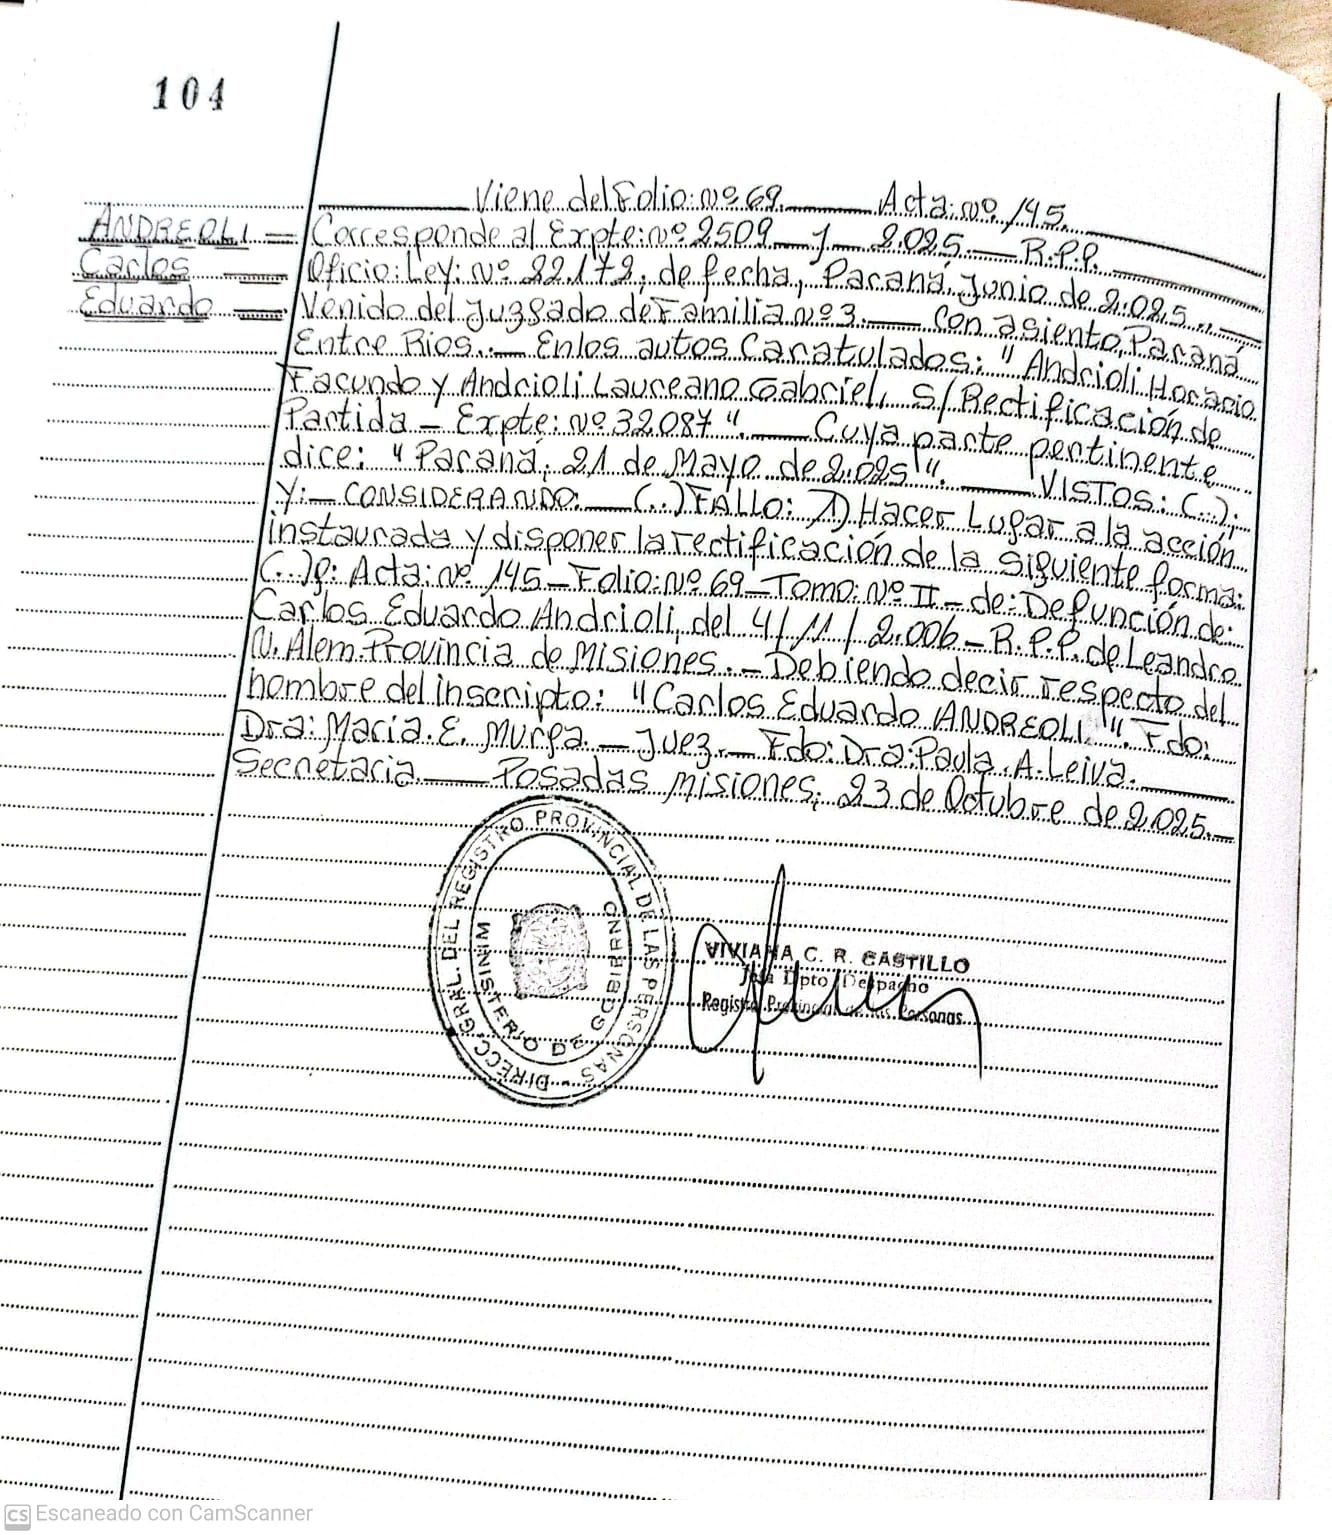 104
Viene del Folio: Nº 69.— Acta: Nº 145.
ANDREOLI — Corresponde al Expte: Nº 2509 — J — 2.025.— R.P.P.
Carlos — Oficio: Ley: Nº 22.172, de fecha, Paraná, Junio de 2.025..—
Eduardo — Venido del Juzgado de Familia Nº 3.— con asiento, Paraná
Entre Rios.— En los autos Caratulados: "Andrioli Horacio
Facundo y Andrioli Laureano Gabriel, S/Rectificación de
Partida — Expte: Nº 32087".— Cuya parte pertinente
dice: "Paraná, 21 de Mayo de 2.025".— VISTOS: (..);
Y:— CONSIDERANDO:— (..) FALLO: 1) Hacer Lugar a la acción
instaurada y disponer la rectificación de la siguiente forma:
(..) Acta: Nº 145 — Folio: Nº 69 — Tomo: Nº II — de: Defunción de:
Carlos Eduardo Andrioli, del 4/11/2.006 — R.P.P. de Leandro
N. Alem. Provincia de Misiones.— Debiendo decir respecto del
nombre del inscripto: "Carlos Eduardo ANDREOLI". Fdo:
Dra: Maria. E. Murga.— Juez.— Fdo: Dra: Paula. A. Leiva.
Secretaria.— Posadas Misiones, 23 de Octubre de 2.025.—
DIRECC. GRAL. DEL REGISTRO PROVINCIAL DE LAS PERSONAS
MINISTERIO DE GOBIERNO
VIVIANA C. R. CASTILLO
Jefa Dpto Despacho
Registro Provincial de las Personas
CS Escaneado con CamScanner